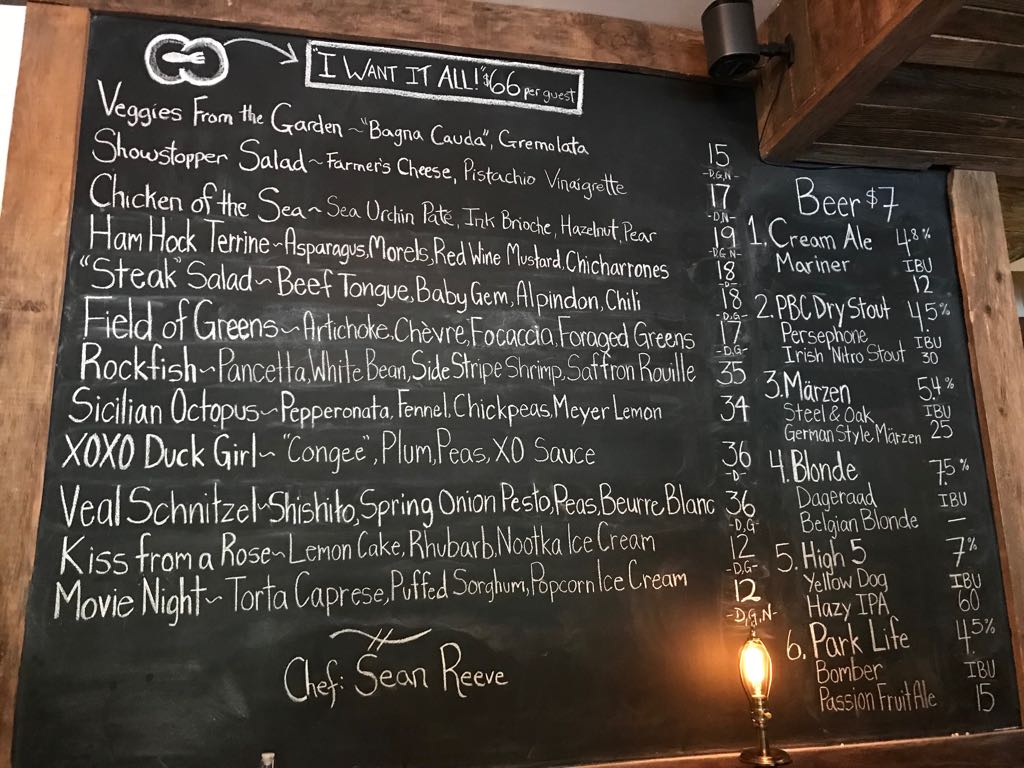 "I WANT IT ALL!" $66 per guest
Veggies From the Garden ~ "Bagna Cauda", Gremolata 15
-D,G,N-
Showstopper Salad ~ Farmer's Cheese, Pistachio Vinaigrette 17
-D,N-
Chicken of the Sea ~ Sea Urchin Paté, Ink Brioche, Hazelnut, Pear 19
-D,G,N-
Ham Hock Terrine ~ Asparagus, Morels, Red Wine Mustard, Chicharrones 18
-D-
"Steak" Salad ~ Beef Tongue, Baby Gem, Alpindon, Chili 18
-D,G-
Field of Greens ~ Artichoke, Chèvre, Focaccia, Foraged Greens 17
-D,G-
Rockfish ~ Pancetta, White Bean, Side Stripe Shrimp, Saffron Rouille 35
Sicilian Octopus ~ Pepperonata, Fennel, Chickpeas, Meyer Lemon 34
XOXO Duck Girl ~ "Congee", Plum, Peas, XO Sauce 36
-D-
Veal Schnitzel ~ Shishito, Spring Onion Pesto, Peas, Beurre Blanc 36
-D,G-
Kiss from a Rose ~ Lemon Cake, Rhubarb, Nootka Ice Cream 12
-D,G-
Movie Night ~ Torta Caprese, Puffed Sorghum, Popcorn Ice Cream 12
-D,g,N-
Chef: Sean Reeve
Beer $7
1. Cream Ale 4.8%
Mariner IBU
12
2. PBC Dry Stout 4.5%
Persephone IBU
Irish Nitro Stout 30
3. Märzen 5.4%
Steel & Oak IBU
German Style Märzen 25
4. Blonde 7.5%
Dageraad IBU
Belgian Blonde —
5. High 5 7%
Yellow Dog IBU
Hazy IPA 60
6. Park Life 4.5%
Bomber IBU
Passion Fruit Ale 15